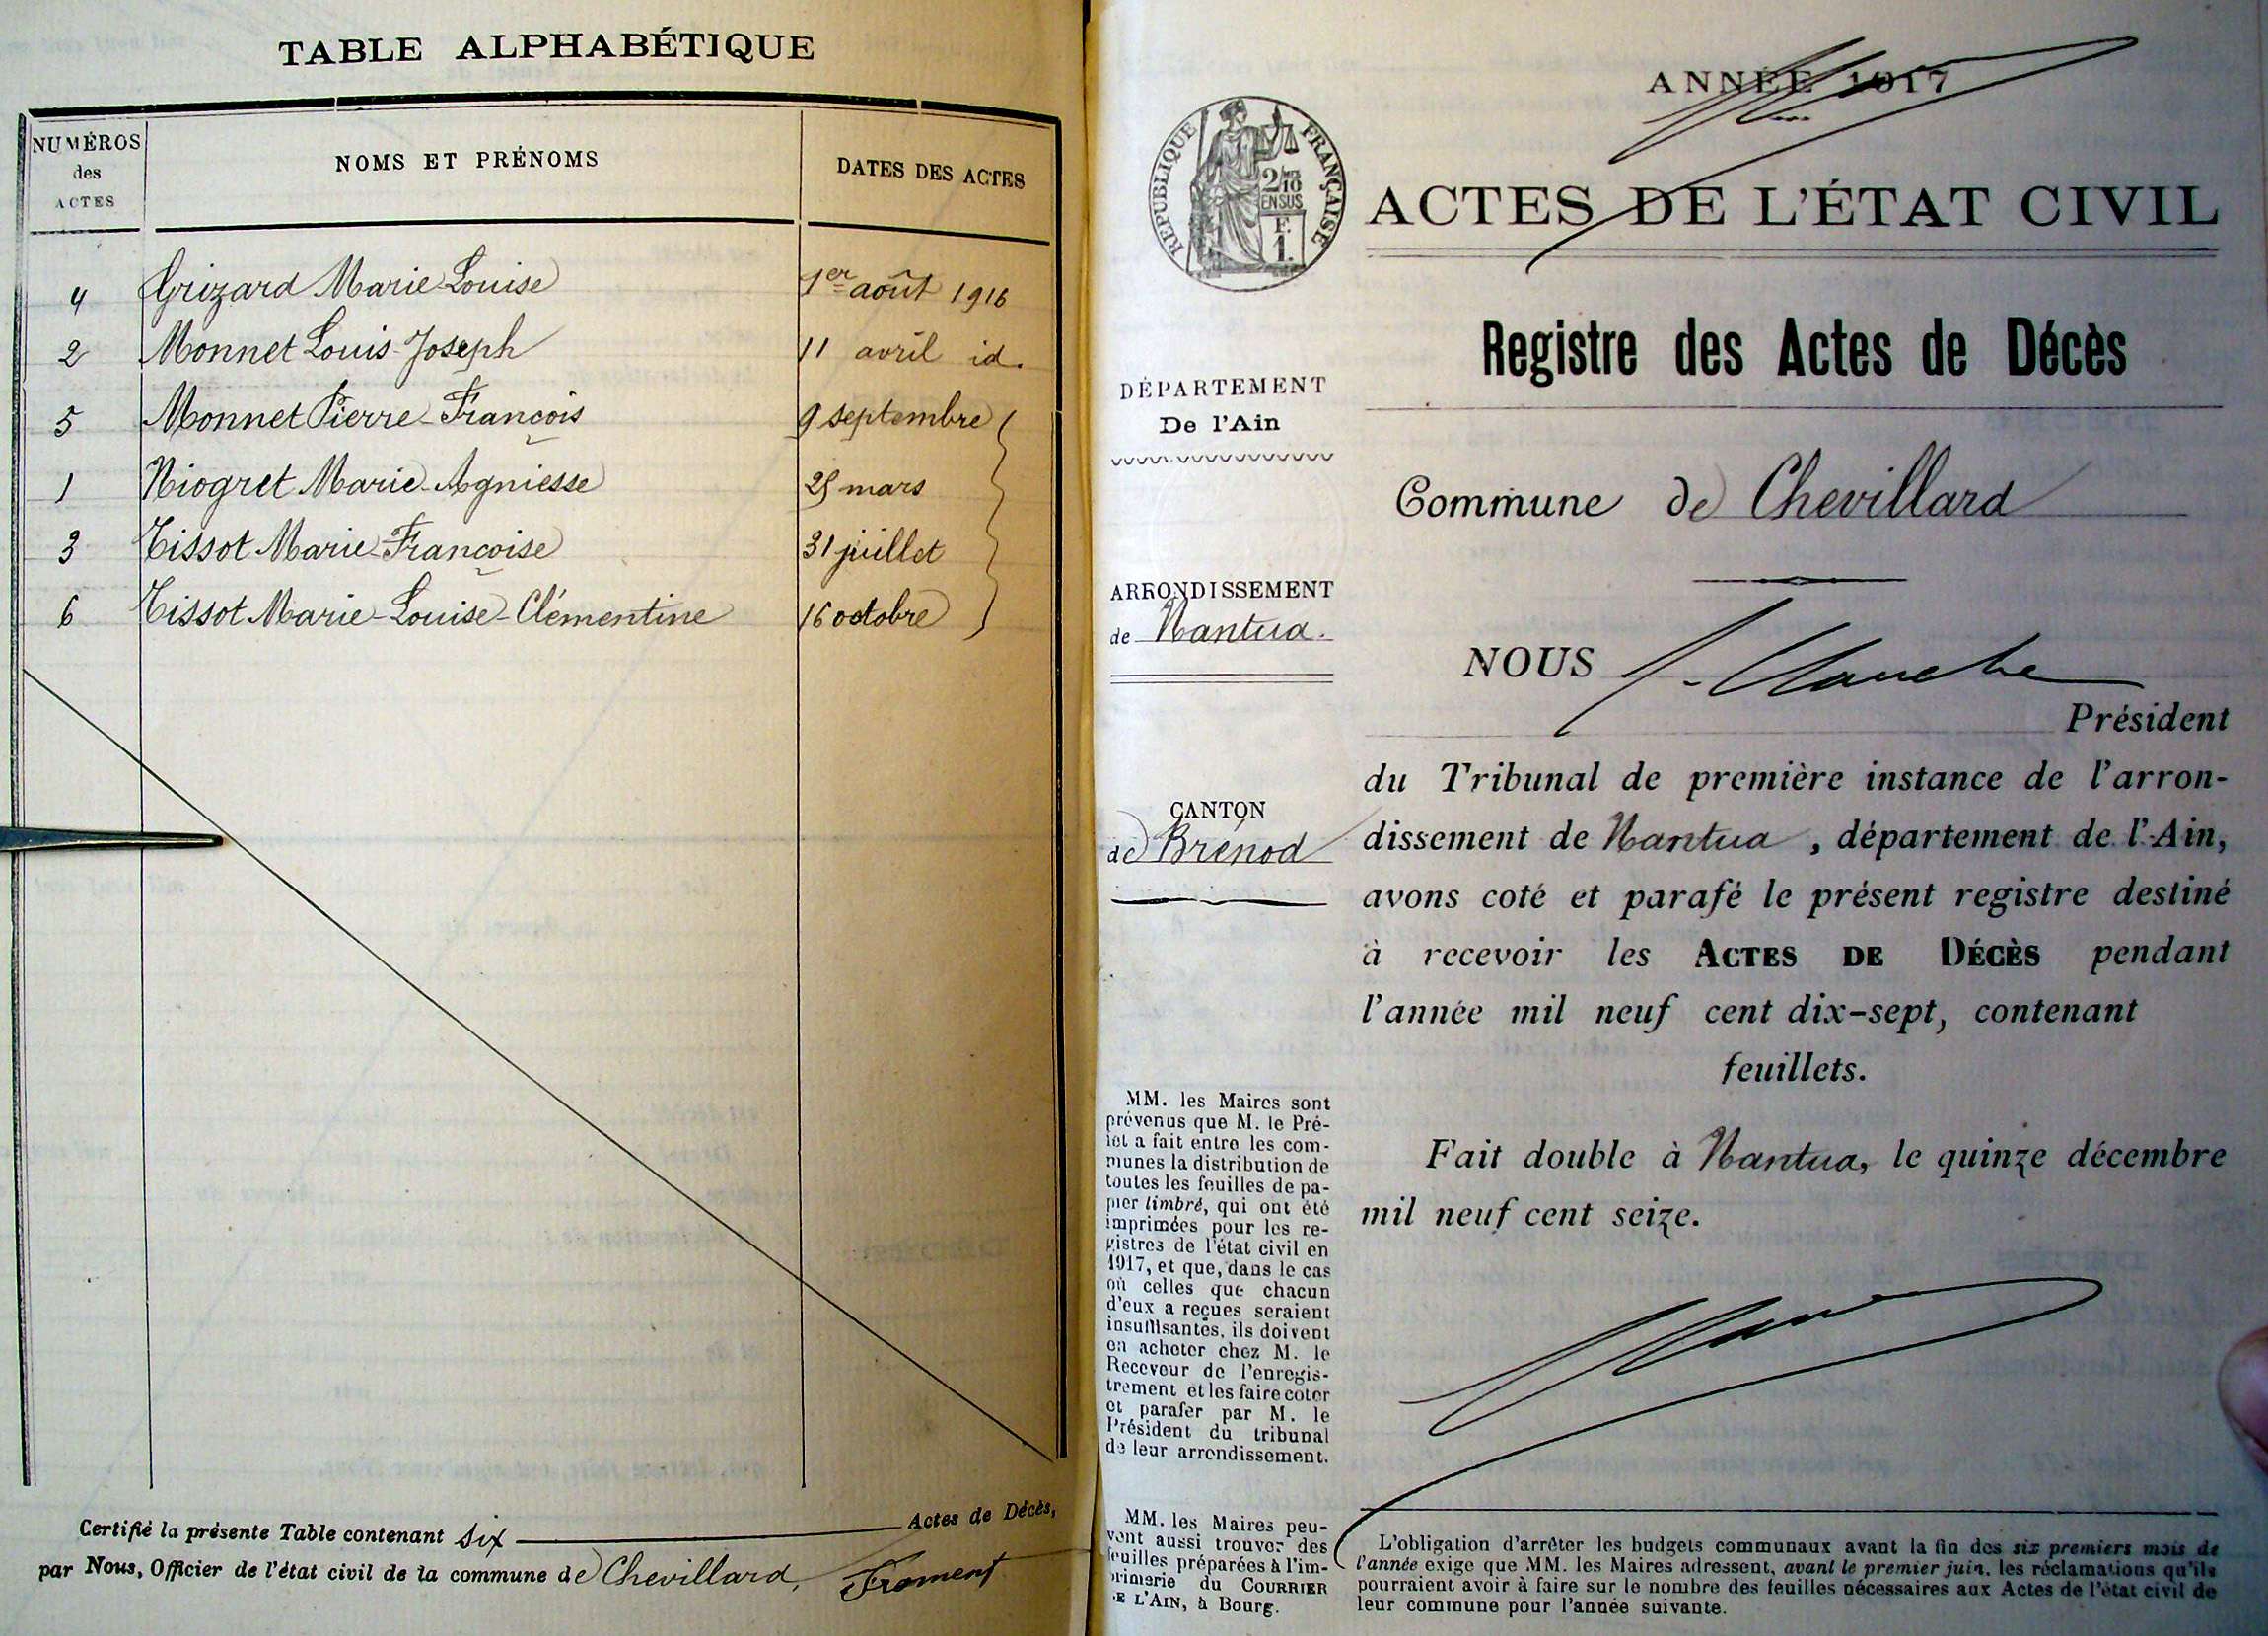 TABLE ALPHABÉTIQUE
NUMÉROS
des
ACTES
NOMS ET PRÉNOMS
DATES DES ACTES
4 Grizard Marie-Louise 1er août 1916
2 Monnet Louis-Joseph 11 avril id.
5 Monnet Pierre-François 9 septembre
1 Niogret Marie-Agniesse 25 mars
3 Tissot Marie-Françoise 31 juillet
6 Tissot Marie-Louise-Clémentine 16 octobre
Certifié la présente Table contenant six Actes de Décès,
par Nous, Officier de l'état civil de la commune de Chevillard, Froment
ANNÉE 1917
RÉPUBLIQUE FRANÇAISE
2/10
EN SUS
F.
1.
ACTES DE L'ÉTAT CIVIL
Registre des Actes de Décès
DÉPARTEMENT
De l'Ain
Commune de Chevillard
ARRONDISSEMENT
de Nantua.
CANTON
de Brénod
NOUS
Président
du Tribunal de première instance de l'arron-
dissement de Nantua, département de l'Ain,
avons coté et parafé le présent registre destiné
à recevoir les ACTES DE DÉCÈS pendant
l'année mil neuf cent dix-sept, contenant
feuillets.
Fait double à Nantua, le quinze décembre
mil neuf cent seize.
MM. les Maires sont
prévenus que M. le Pré-
fet a fait entre les com-
munes la distribution de
toutes les feuilles de pa-
pier timbré, qui ont été
imprimées pour les re-
gistres de l'état civil en
1917, et que, dans le cas
où celles que chacun
d'eux a reçues seraient
insuffisantes, ils doivent
en acheter chez M. le
Receveur de l'enregis-
trement et les faire coter
et parafer par M. le
Président du tribunal
de leur arrondissement.
MM. les Maires peu-
vent aussi trouver des
feuilles préparées à l'im-
primerie du COURRIER
DE L'AIN, à Bourg.
L'obligation d'arrêter les budgets communaux avant la fin des six premiers mois de
l'année exige que MM. les Maires adressent, avant le premier juin, les réclamations qu'ils
pourraient avoir à faire sur le nombre des feuilles nécessaires aux Actes de l'état civil de
leur commune pour l'année suivante.